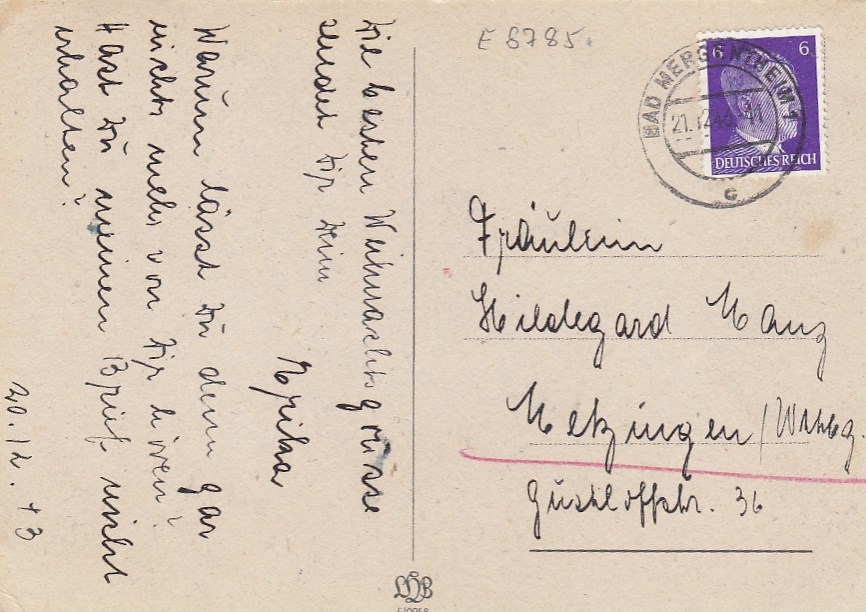 Die besten Weihnachtsgrüsse
sendet Dir Dein
Warum lässt Du denn gar
nichts mehr von Dir hören?
Hast Du meinen Brief nicht
erhalten?
20.12.43
E 6785.
6 6
DEUTSCHES REICH
BAD MERGENTHEIM 1
21.12.43
c
Fräulein
Hildegard Manz
Metzingen / Wttbg.
Gustloffstr. 36